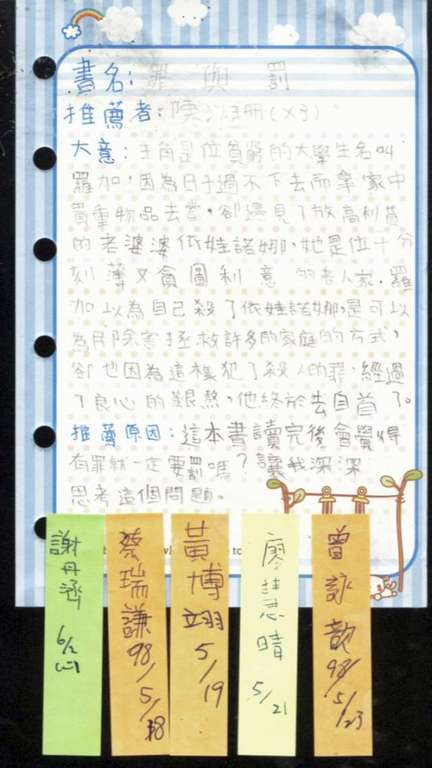 書名:罪與罰
推薦者:陳冊(x3)
大意:主角是位貧窮的大學生名叫
羅加,因為日子過不下去而拿家中
貴重物品去當,卻遇見了放高利貸
的老婆婆依娃諾娜,她是位十分
刻薄又貪圖利意的老人家,羅
加以為自己殺了依娃諾娜,是可以
為民除害拯救許多的家庭的方式,
卻也因為這樣犯了殺人的罪,經過
了良心的艱熬,他終於去自首了。
推薦原因:這本書讀完後會覺得
有罪就一定要罰嗎?讓我深深
思考這個問題。
謝丹涵 6/2
蔡瑞謙 98/5/18
黃博翊 5/19
廖慧晴 5/21
曾詠歆 98/5/23